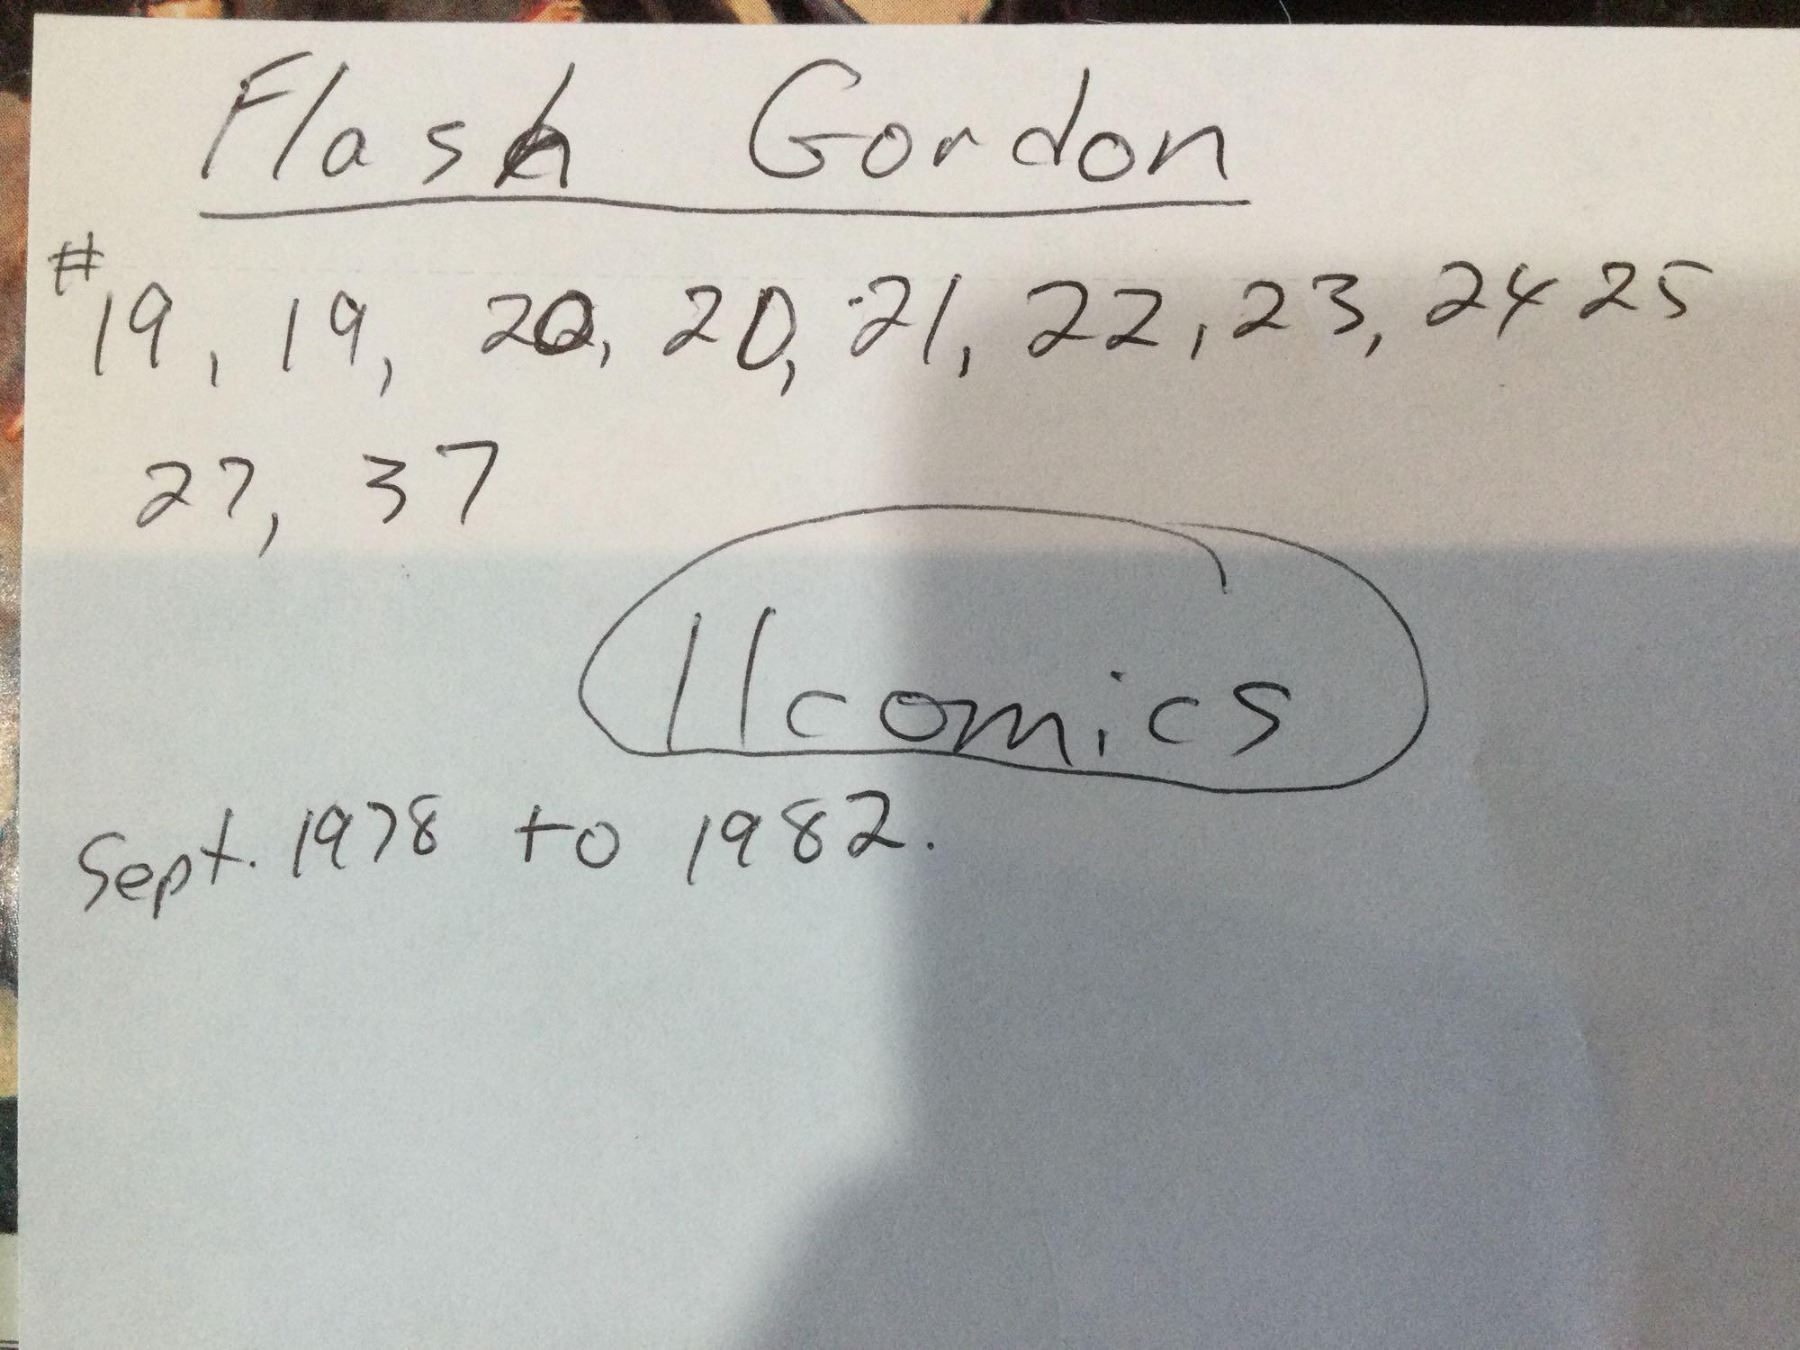 Flash Gordon
# 19, 19, 20, 20, 21, 22, 23, 24 25
27, 37
11 comics
Sept. 1978 to 1982.